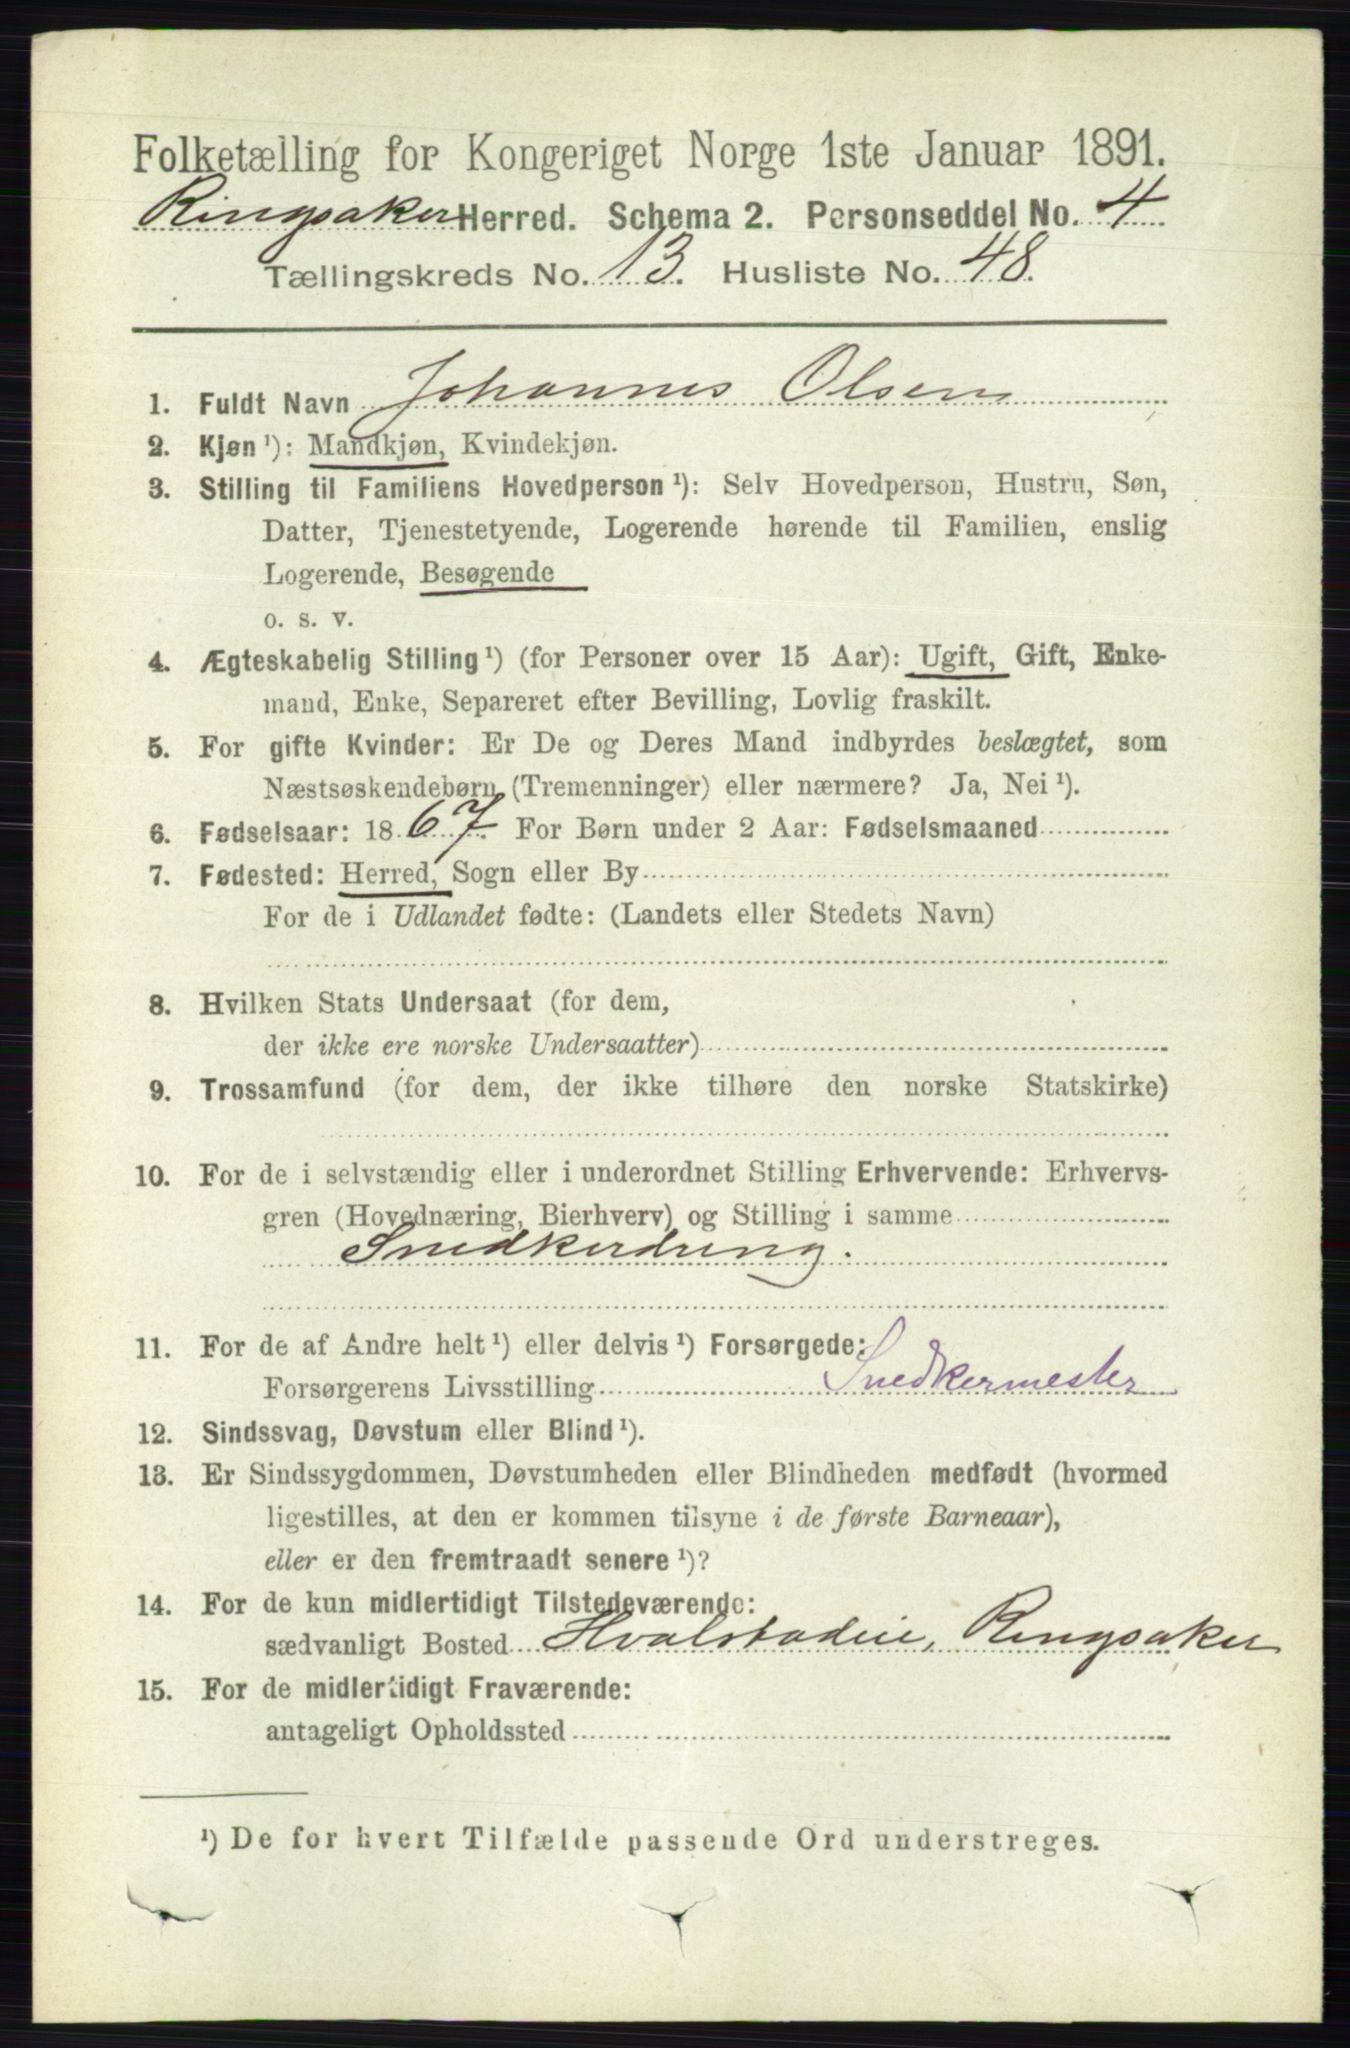 Folketælling for Kongeriget Norge 1ste Januar 1891.
Ringsaker Herred. Schema 2. Personseddel No. 4
Tællingskreds No. 13. Husliste No. 48.
1. Fuldt Navn Johannes Olsen
2. Kjøn ¹): Mandkjøn, Kvindekjøn.
3. Stilling til Familiens Hovedperson ¹): Selv Hovedperson, Hustru, Søn,
Datter, Tjenestetyende, Logerende hørende til Familien, enslig
Logerende, Besøgende
o. s. v.
4. Ægteskabelig Stilling ¹) (for Personer over 15 Aar): Ugift, Gift, Enke-
mand, Enke, Separeret efter Bevilling, Lovlig fraskilt.
5. For gifte Kvinder: Er De og Deres Mand indbyrdes beslægtet, som
Næstsøskendebørn (Tremenninger) eller nærmere? Ja, Nei ¹).
6. Fødselsaar: 1867. For Børn under 2 Aar: Fødselsmaaned
7. Fødested: Herred, Sogn eller By
For de i Udlandet fødte: (Landets eller Stedets Navn)
8. Hvilken Stats Undersaat (for dem,
der ikke ere norske Undersaatter)
9. Trossamfund (for dem, der ikke tilhøre den norske Statskirke)
10. For de i selvstændig eller i underordnet Stilling Erhvervende: Erhvervs-
gren (Hovednæring, Bierhverv) og Stilling i samme
Snedkerdreng.
11. For de af Andre helt ¹) eller delvis ¹) Forsørgede:
Forsørgerens Livsstilling Snedkermester
12. Sindssvag, Døvstum eller Blind ¹).
13. Er Sindssygdommen, Døvstumheden eller Blindheden medfødt (hvormed
ligestilles, at den er kommen tilsyne i de første Barneaar),
eller er den fremtraadt senere ¹)?
14. For de kun midlertidigt Tilstedeværende:
sædvanligt Bosted Hvalstadeie, Ringsaker
15. For de midlertidigt Fraværende:
antageligt Opholdssted
¹) De for hvert Tilfælde passende Ord understreges.